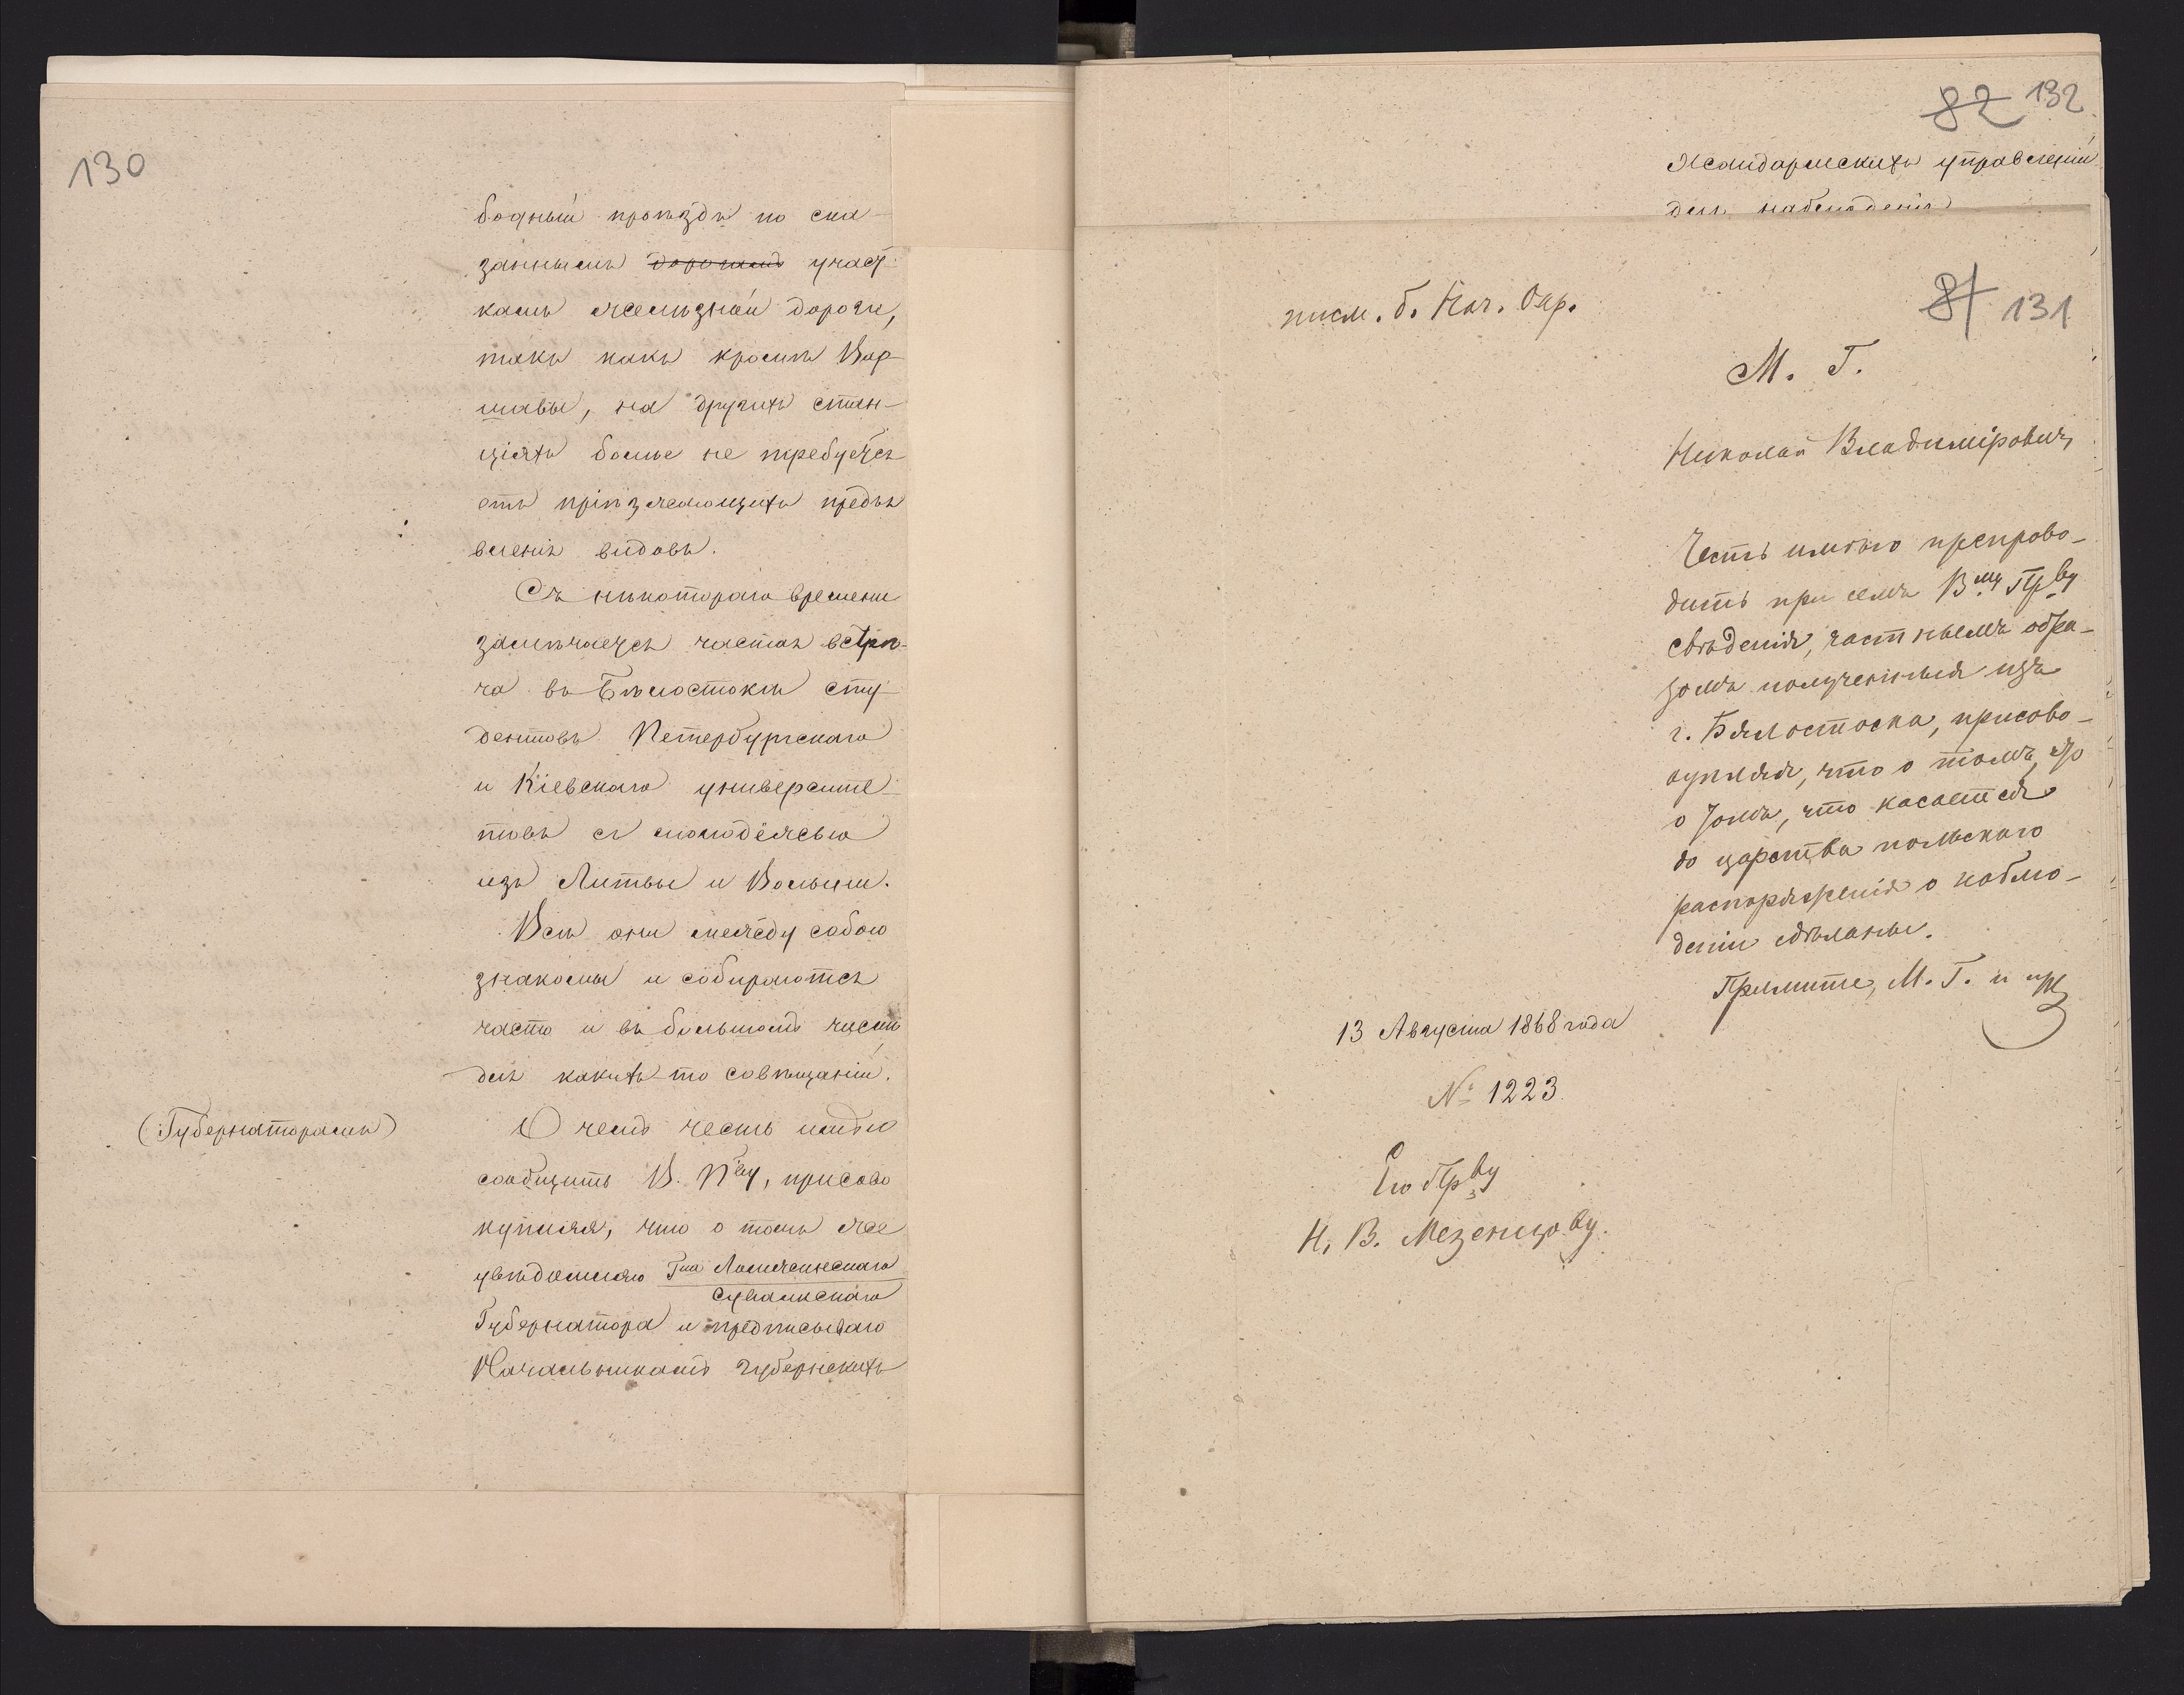 130
бодный проѣздъ по ска-
заннымъ дорогамъ участ-
камъ желѣзной дороги,
такъ какъ кромѣ Вар-
шавы, на другихъ стан-
ціяхъ болѣе не требуется
отъ пріѣзжающихъ предъя
вленія видовъ.
Съ нѣкотораго времени
замѣчается частая встрѣ-
ча въ Бѣлостокѣ сту-
дентовъ Петербургскаго
и Кіевскаго университе-
товъ съ молодёжью
изъ Литвы и Волыни.
Всѣ они между собою
знакомы и собираются
часто и въ большомъ числѣ
для какихъ-то совѣщаній.
(Губернаторамъ)
О чемъ честь имѣю
сообщить В. П֊ву, присово
купляя, что о томъ же
увѣдомляю Гна Ломжинскаго
Сувалкскаго
Губернатора и предписываю
Начальникамъ губернскихъ
82 132
Жандармскихъ управленій
для наблюденія
писм. б. Нач. Окр.
81 131
М. Г.
Николай Владиміровичъ,
Честь имѣю препрово-
дить при семъ Вму Прву
свѣденія, частнымъ обра-
зомъ полученныя изъ
г. Бялостока, присово-
купляя, что о томъ,
о томъ, что касается
до царства польскаго
распоряженія о наблю-
деніи сдѣланы.
Примите, М. Г. и пр
13 Августа 1868 года
№ 1223
Его Прву
Н. В. Мезенцову.